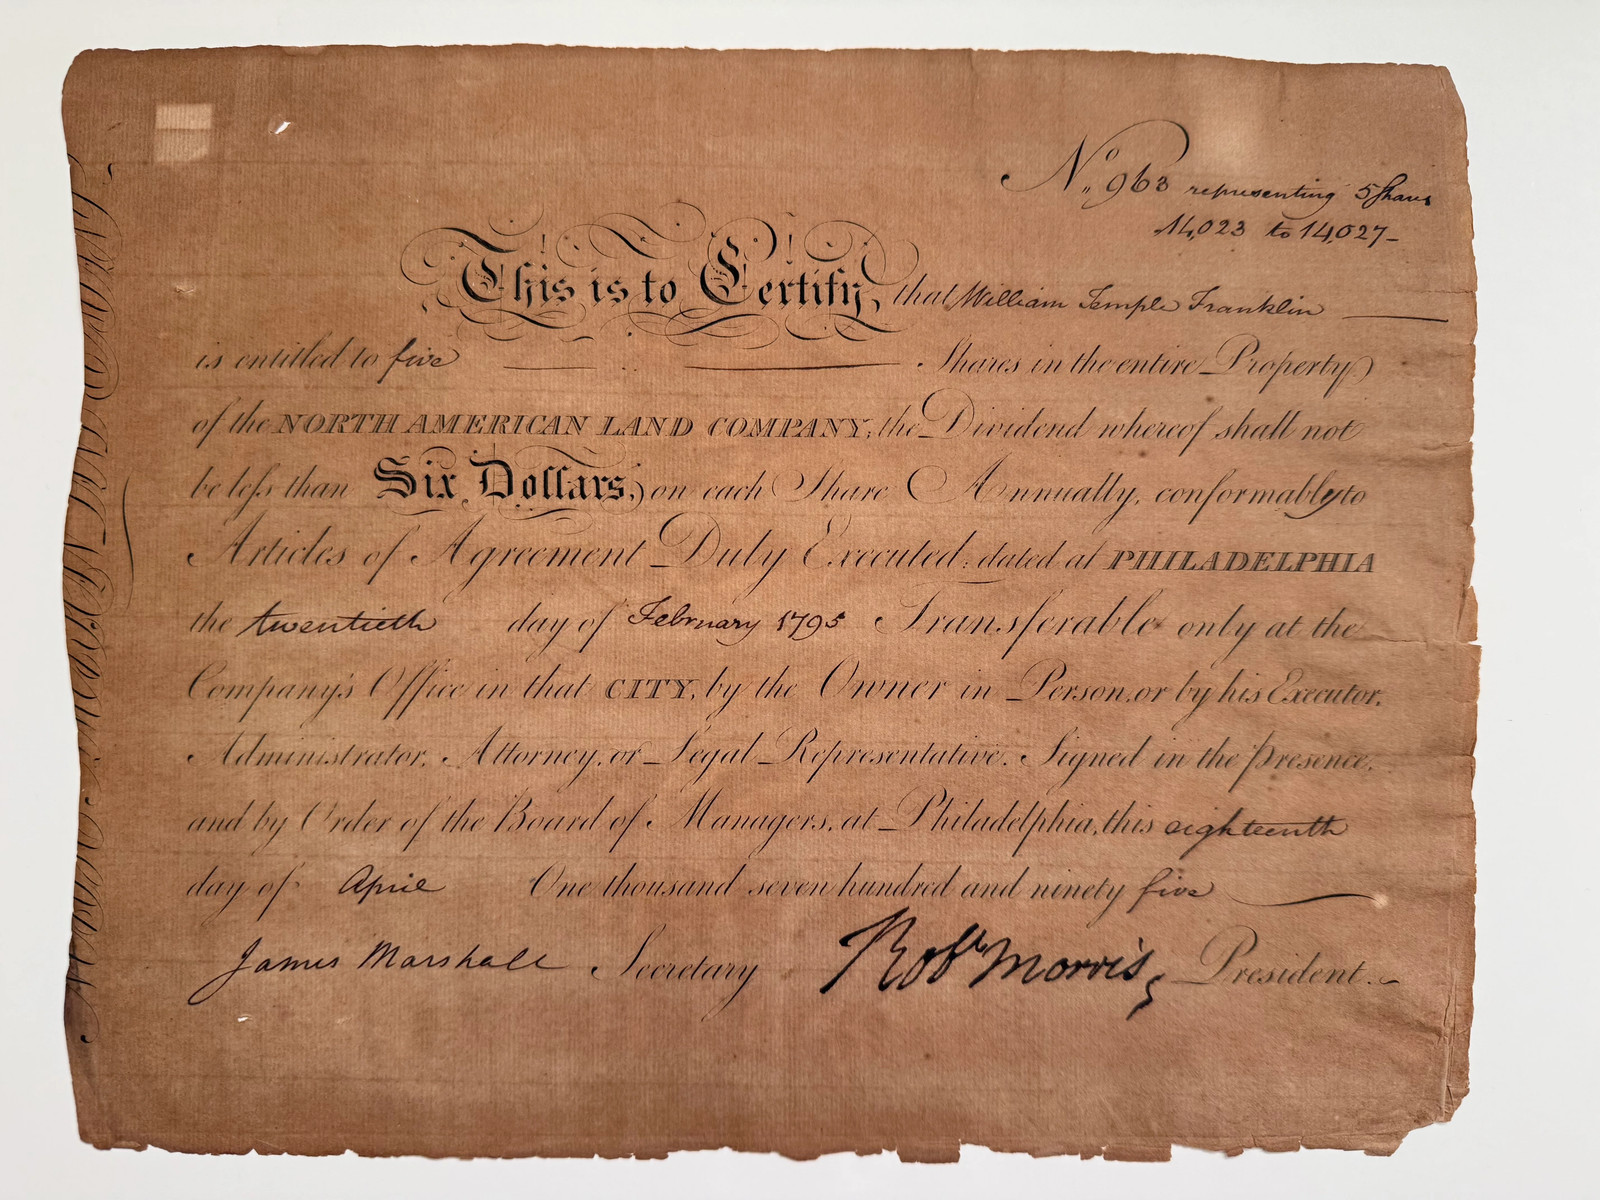 No. 963 representing 5 Shares
14,023 to 14,027-
This is to Certify, that William Temple Franklin
is entitled to five Shares in the entire Property
of the NORTH AMERICAN LAND COMPANY; the Dividend whereof shall not
be less than Six Dollars, on each Share Annually, conformably to
Articles of Agreement Duly Executed; dated at PHILADELPHIA
the twentieth day of February 1795 Transferable only at the
Company's Office in that CITY, by the Owner in Person, or by his Executor,
Administrator, Attorney, or Legal Representative. Signed in the presence,
and by Order of the Board of Managers, at Philadelphia, this eighteenth
day of April One thousand seven hundred and ninety five
James Marshall Secretary Robt Morris, President.